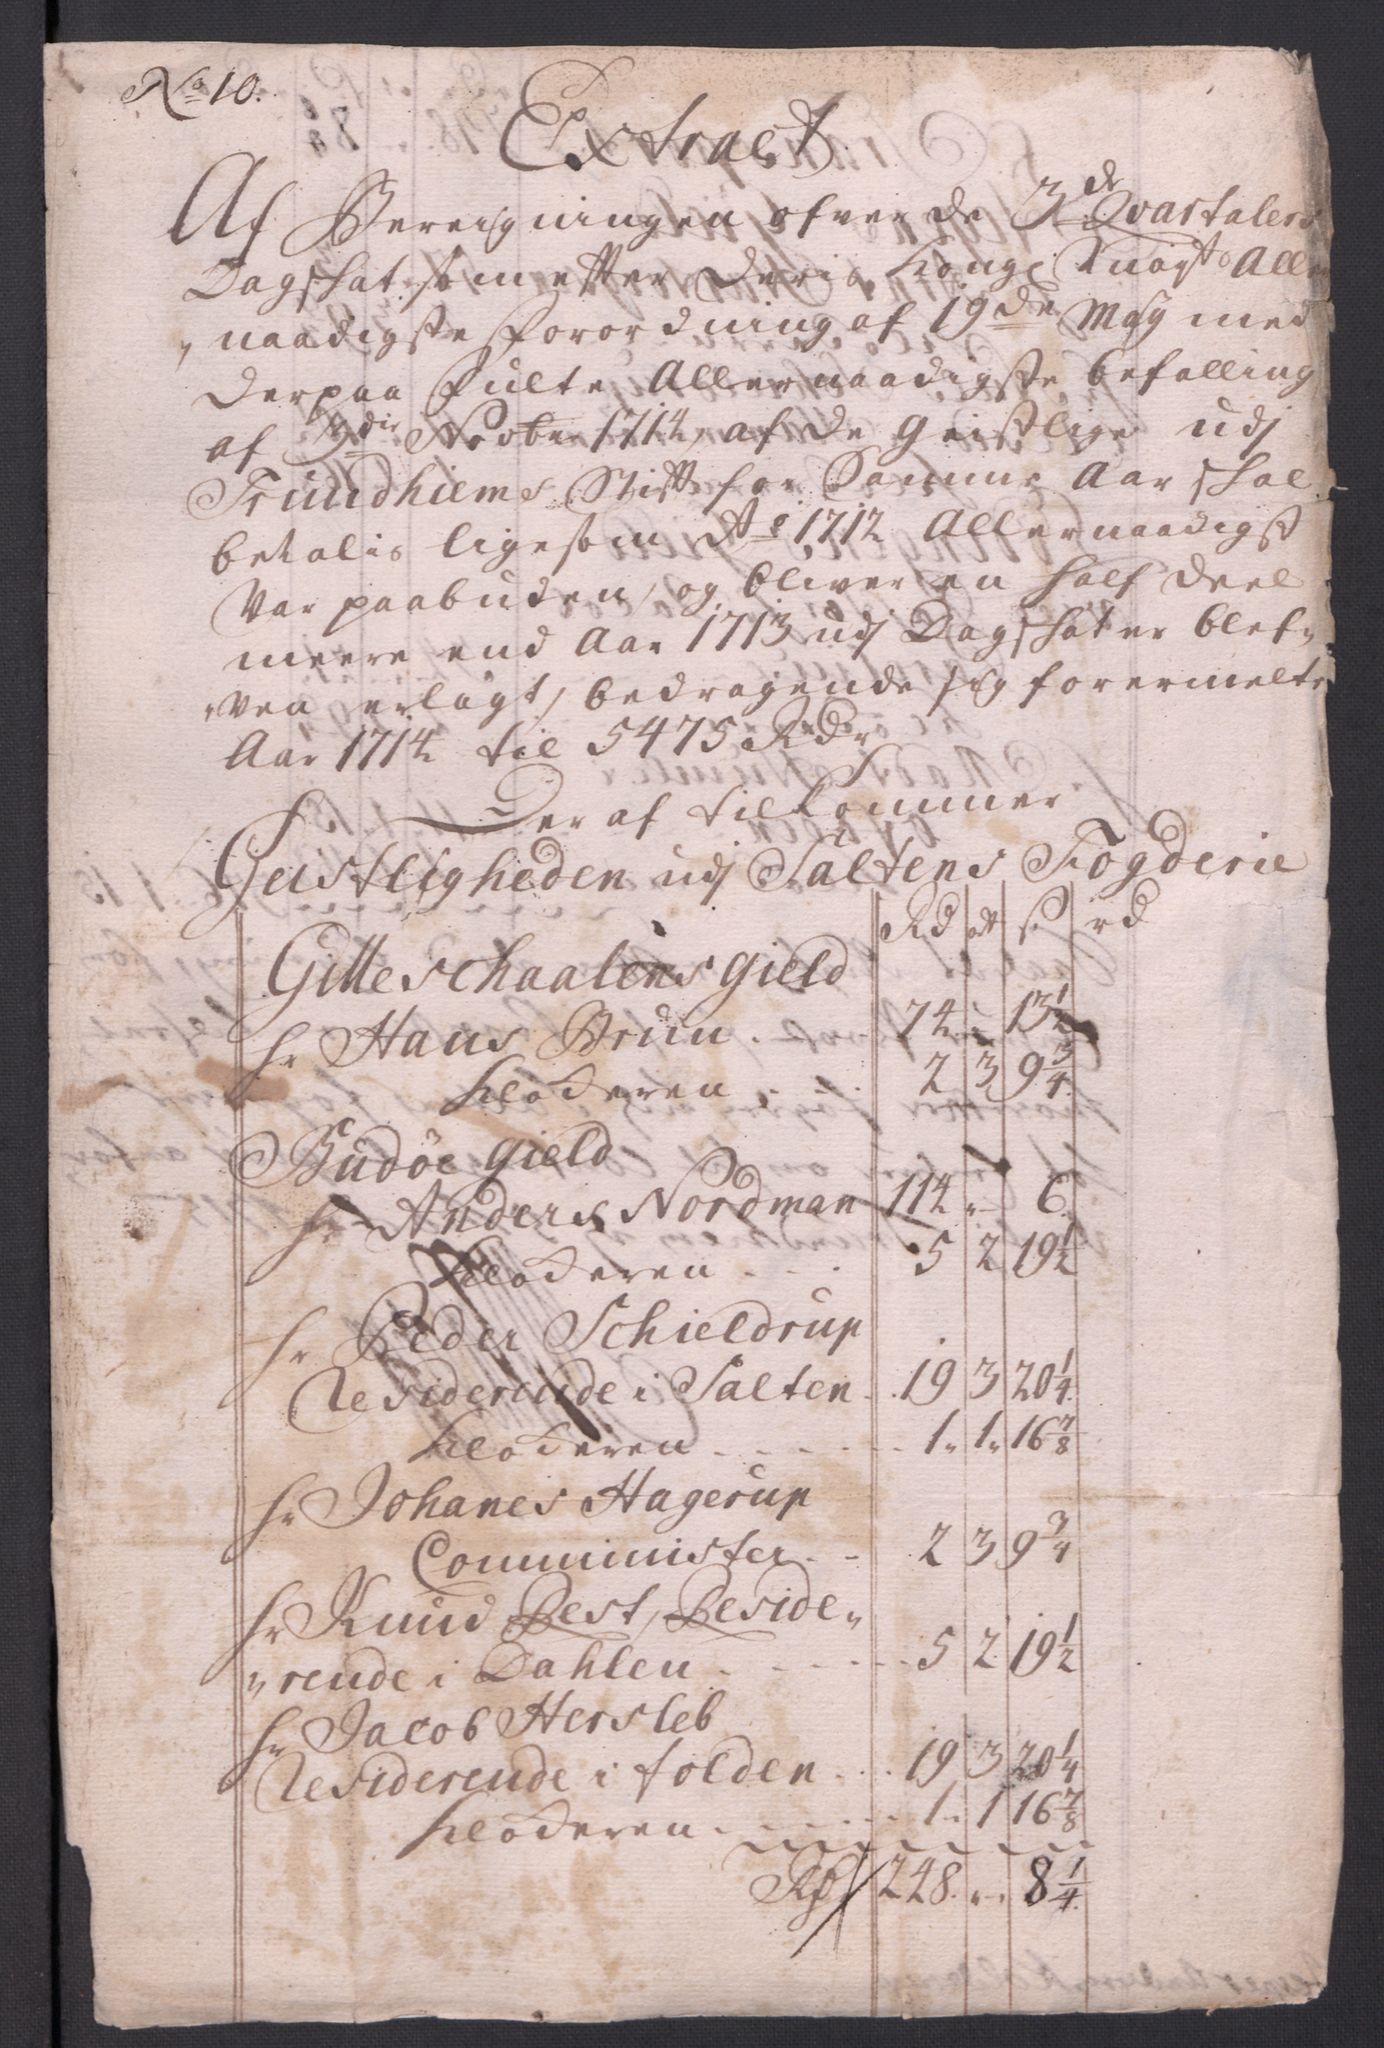 No 10.
Extract
Af Bereigningen ofver de 3de Qvartalers
Dagschat som efter Deris Kongl: Mayts Aller
„naadigste Forordning af 19de May med
Derpaa fulte Allernaadigste befalling
af Novbr 1714, af de Geistlige udj
Trundhiems Stift for Samme Aar schal
betalis ligesom Ao 1712 Allernaadigst
Var paabuden, og bliver en half deel
meere end Aar 1713 udj Dagschater blef„
„ven erlagt, bedragende sig for ermelte
Aar 1714 til 5475 Rdr
Der af tilkommer
Geistligheden udj Saltens Fogderie
Rd ort s rd
Gilleschaalens gield
hr Hans Brun . 74 „ 13 1/2
Klocheren 2 3 9 3/4
Budöe gield
hr Anders Nordman 114 „ 6
Klocheren . . . 5 2 19 1/2
hr Peder Schieldrup
Residerende i Salten . . 19 3 20 1/4
Klocheren . . . 1 „ 1 „ 16 7/8
hr Johanes Hagerup
Comminister . . 2 3 9 3/4
hr Knud Best, Reside„
„rende i Dahlen . . . 5 2 19 1/2
hr Jacob Hersleb
Residerende i folden . . . 19 3 20 1/4
Klocheren . . . 1 „ 1 16 7/8
Rd 248 „ 8 1/4